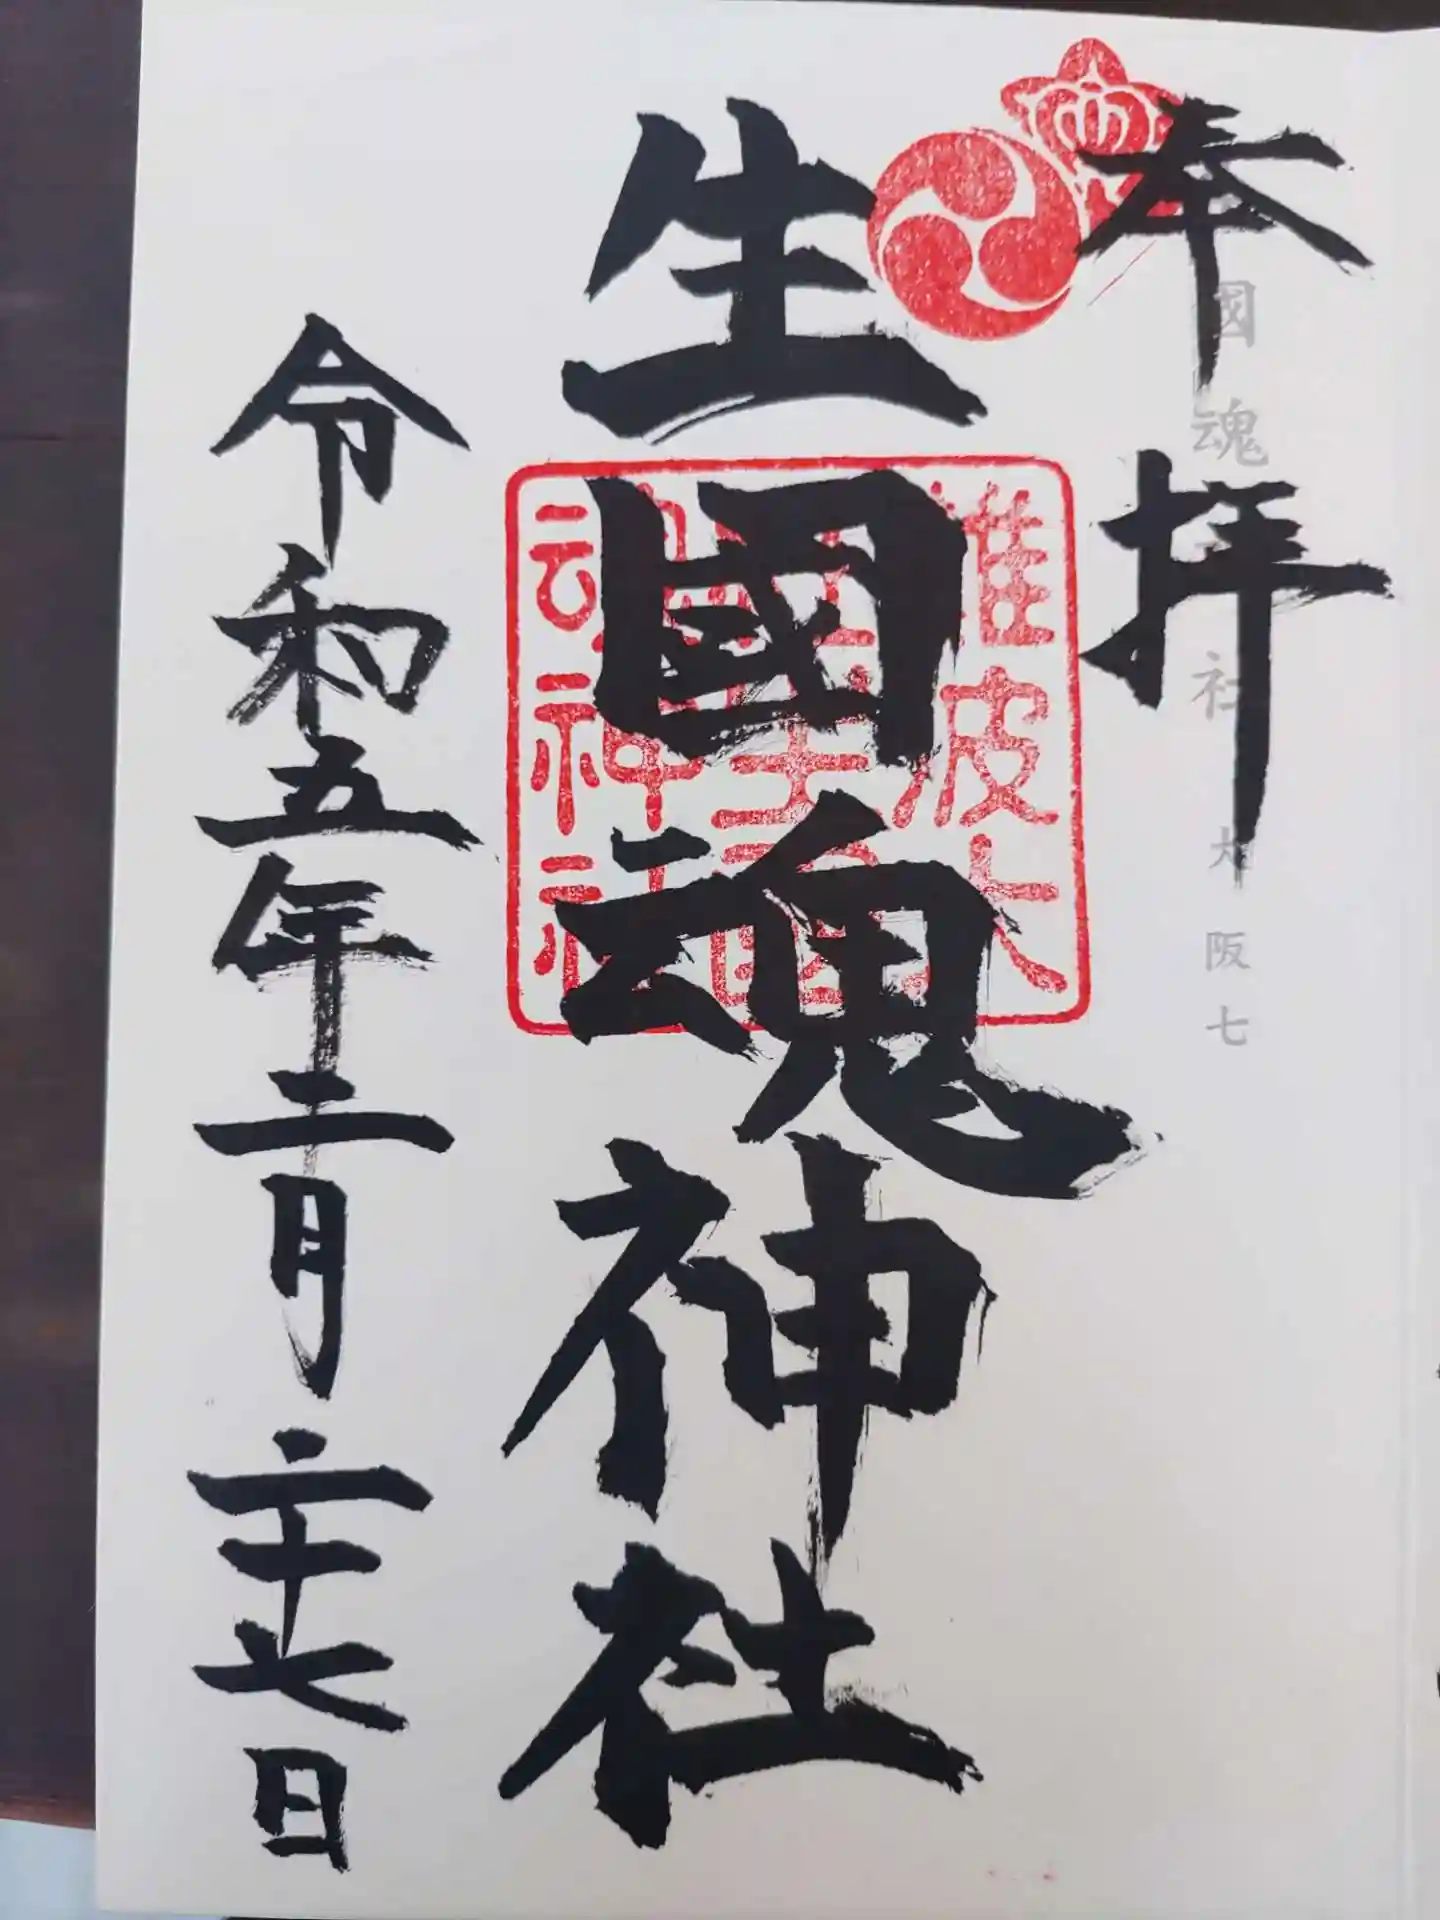 奉拝
國魂 社 大阪七
生國魂神社
難波大
生國魂神社
令和五年二月二十七日